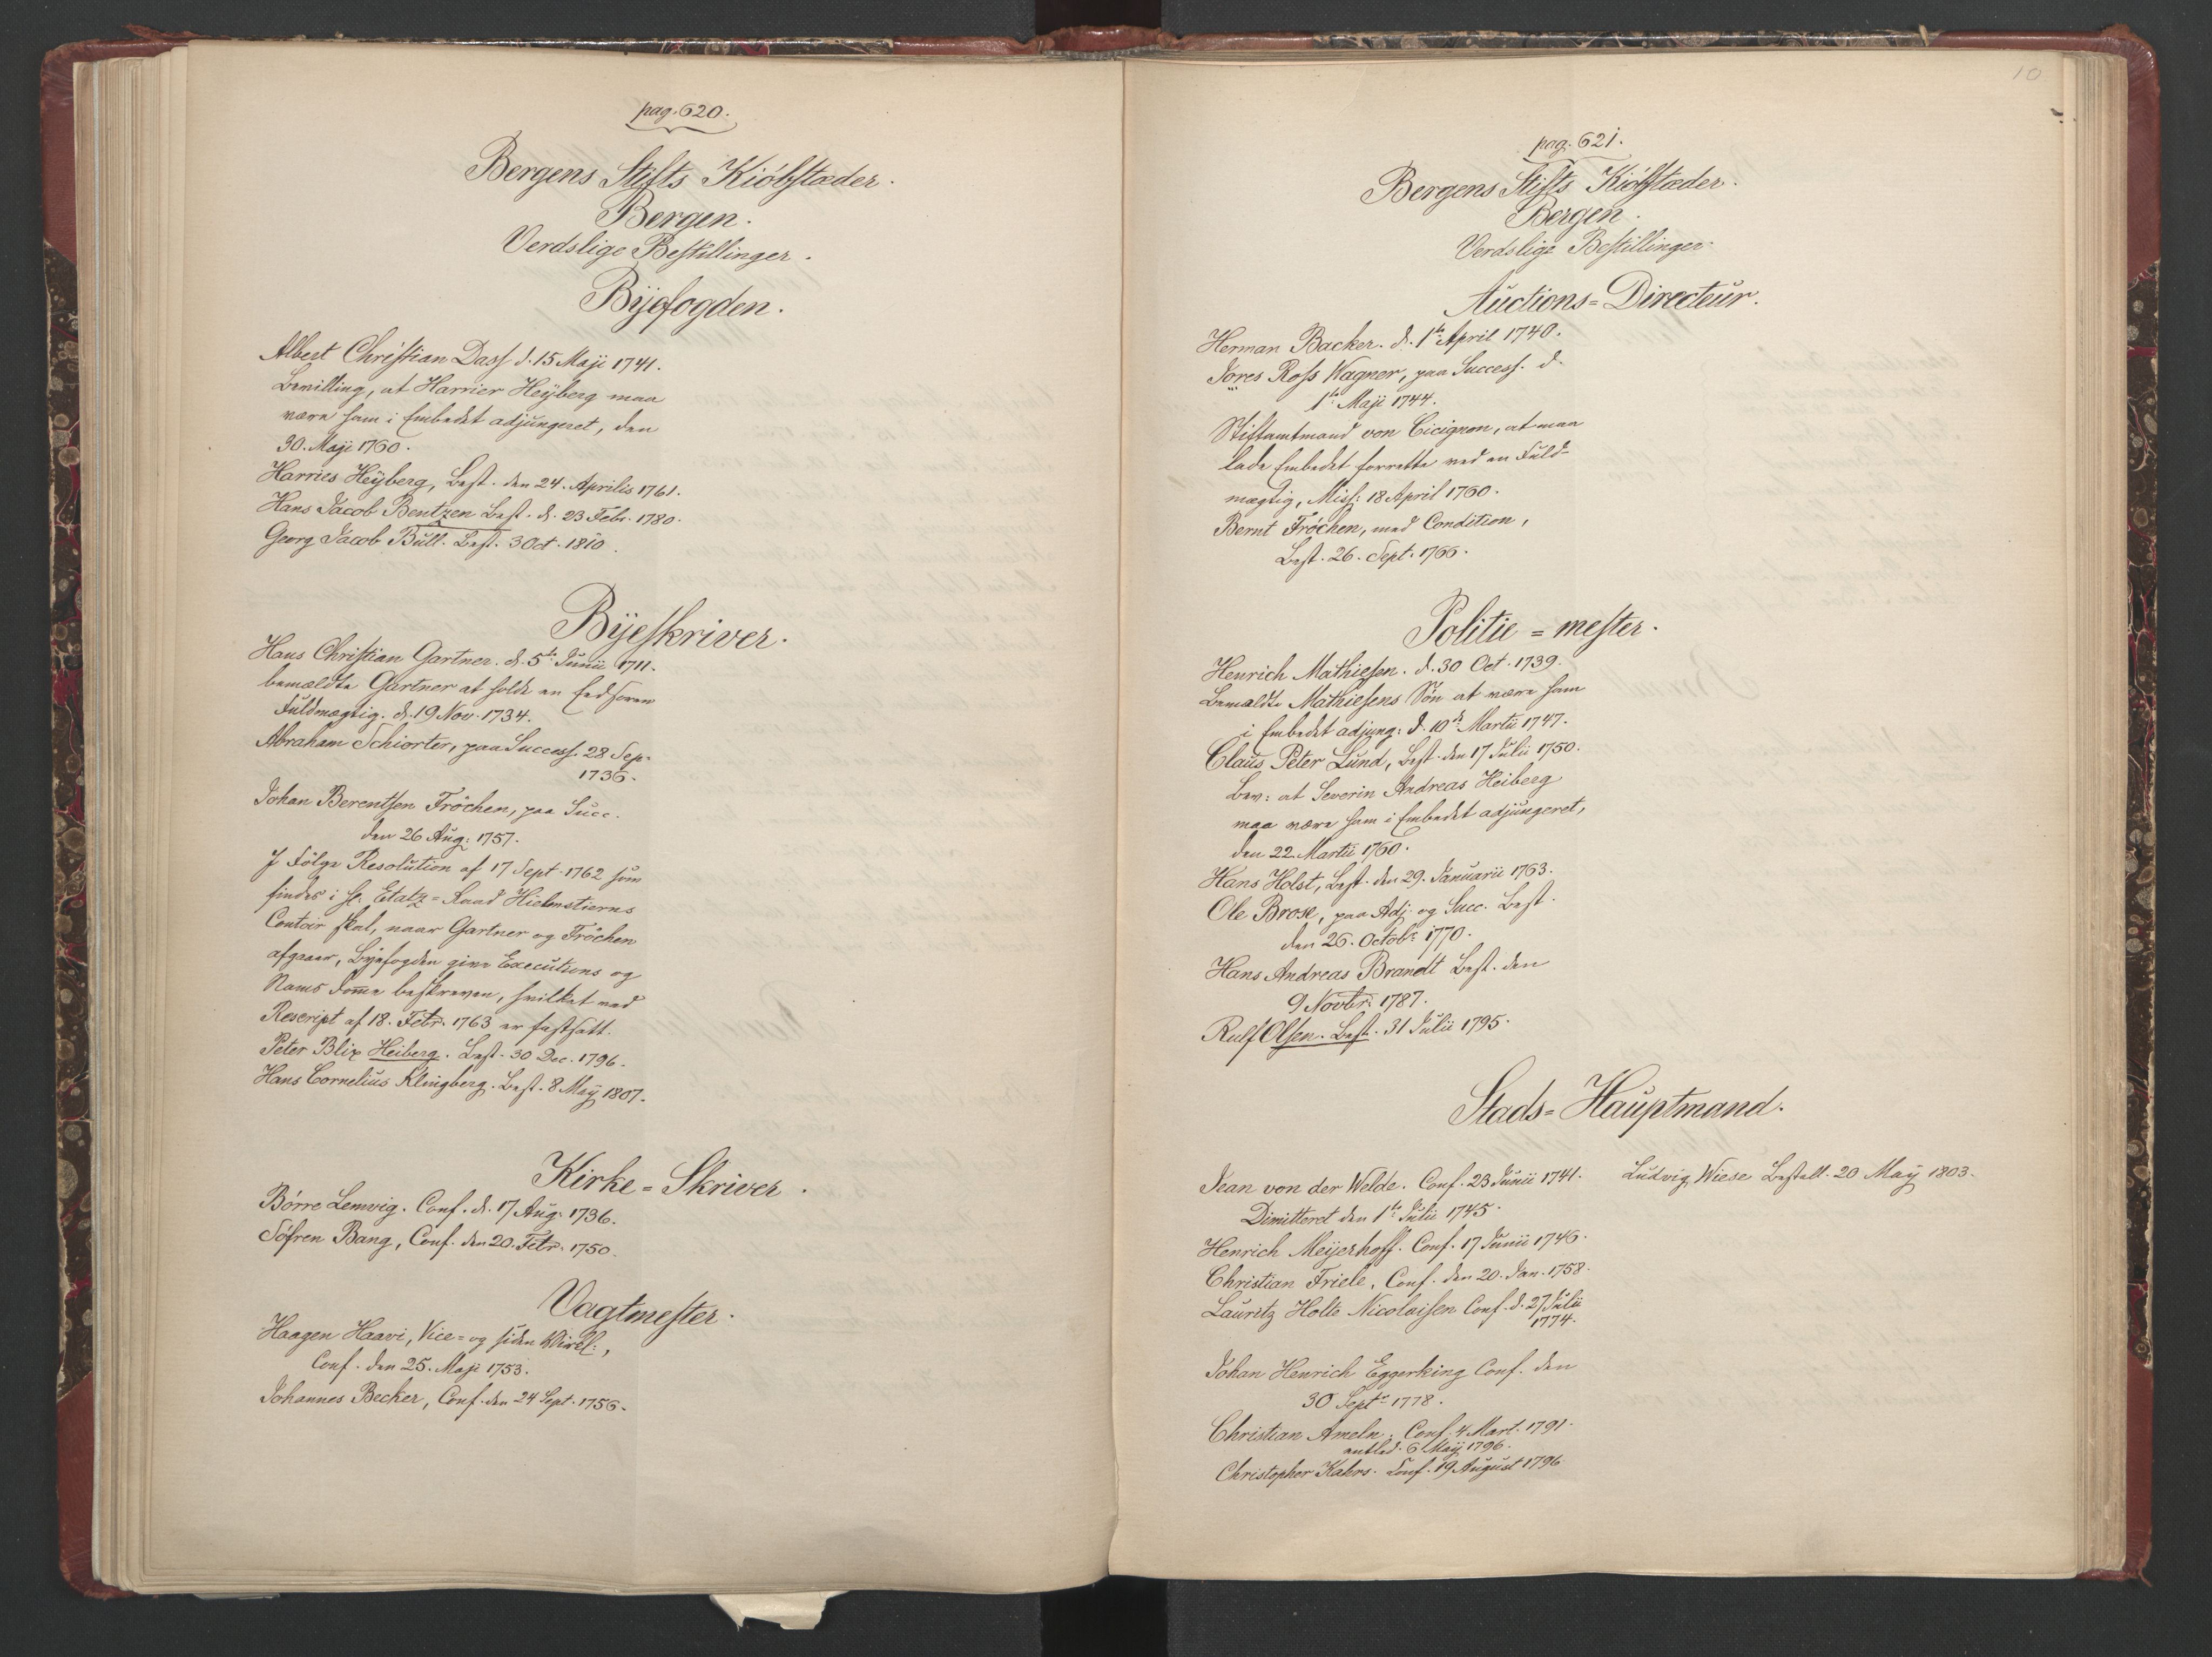 pag. 620.
Bergens Stifts Kiöbstæder.
Bergen.
Verdslige Bestillinger.
Bÿefogden.
Albert Christian Dass d. 15 Maji 1741.
Bevilling, at Harrier Heÿberg maa
være ham i Embedet adjungeret, den
30. Maji 1760.
Harries Heÿberg, Best. den 24. Aprilis 1761.
Hans Jacob Bentzen Best. d. 23 Febr. 1780.
Georg Jacob Bull. Best. 3 Oct. 1810.
Bÿeskriver.
Hans Christian Gartner. d. 5te Junii 1711.
bemældte Gartner at holde en Eedsoren
Fuldmægtig. d. 19 Nov. 1734.
Abraham Schiorter, paa Success. 28 Sep.
1736.
Johan Berentsen Fröchen, paa Succ.
den 26 Aug: 1757.
I Fölge Resolution af 17 Sept. 1762 som
findes i H. Etatz-Raad Hielmstierns
Contoir skal, naar Gartner og Fröchen
afgaaer, Bÿefogden give Executions og
Nams Domme beskreven, hvilket ved
Rescript af 18. Febr. 1763 er fastsatt.
Peter Blix Heiberg. Best. 30 Dec. 1796.
Hans Cornelius Klingberg. Best. 8 Maÿ 1807.
Kirke-Skriver.
Börre Lemvig. Conf. d. 17 Aug. 1736.
Söfren Bang, Conf. den 20. Febr. 1750.
Vagtmester.
Haagen Haavi, Vice- og siden Wirel:,
Conf. den 25. Maji 1753.
Johannes Becker, Conf. den 24 Sept. 1756.
10
pag. 621.
Bergens Stifts Kiöbstæder.
Bergen.
Verdslige Bestillinger.
Auctions-Directeur.
Herman Backer. d. 1te April 1740.
Jores Ross Wagner, paa Success. d.
1te Maji 1744.
Stiftamtmand von Cicignon, at maa
lade Embedet forrette ved en Fuld-
mægtig, Miss: 18 April 1760.
Bernt Fröchen, med Condition,
Best. 26. Sept. 1766.
Politie-mester.
Henrich Mathiesen. d. 30 Oct. 1739.
Bemældte Mathiesens Sön at være ham
i Embedet adjung: d. 10de Martii 1747.
Claus Peter Lund, Best. den 17 Julii 1750.
Bev: at Severin Andreas Heiberg
maa være ham i Embedet adjungeret,
den 22. Martii 1760.
Hans Holst, Best. den 29. Januarii 1763.
Ole Brose, paa Adj. og Succ. Best.
den 26. Octobr: 1770.
Hans Andreas Brandt Best. den
9 Novbr: 1787.
Rulf Olsen. Best. 31 Julii 1795.
Stads-Hauptmand.
Jean von der Welde. Conf. 23 Junii 1741.
Dimitteret den 1te Julii 1745.
Henrich Meÿerhoff. Conf. 17 Junii 1746.
Christian Friele, Conf. den 20. Jan. 1758.
Lauritz Holte Nicolaisen Conf. d. 27 Julii
1774.
Johan Henrich Eggerking Conf. den
30 Septr 1778.
Christian Ameln. Conf. 4 Mart. 1791.
entled. 6 Maÿ 1796.
Christopher Kahrs. Conf. 19 August 1796
Ludvig Wiese Bestall. 20 Maÿ 1803.